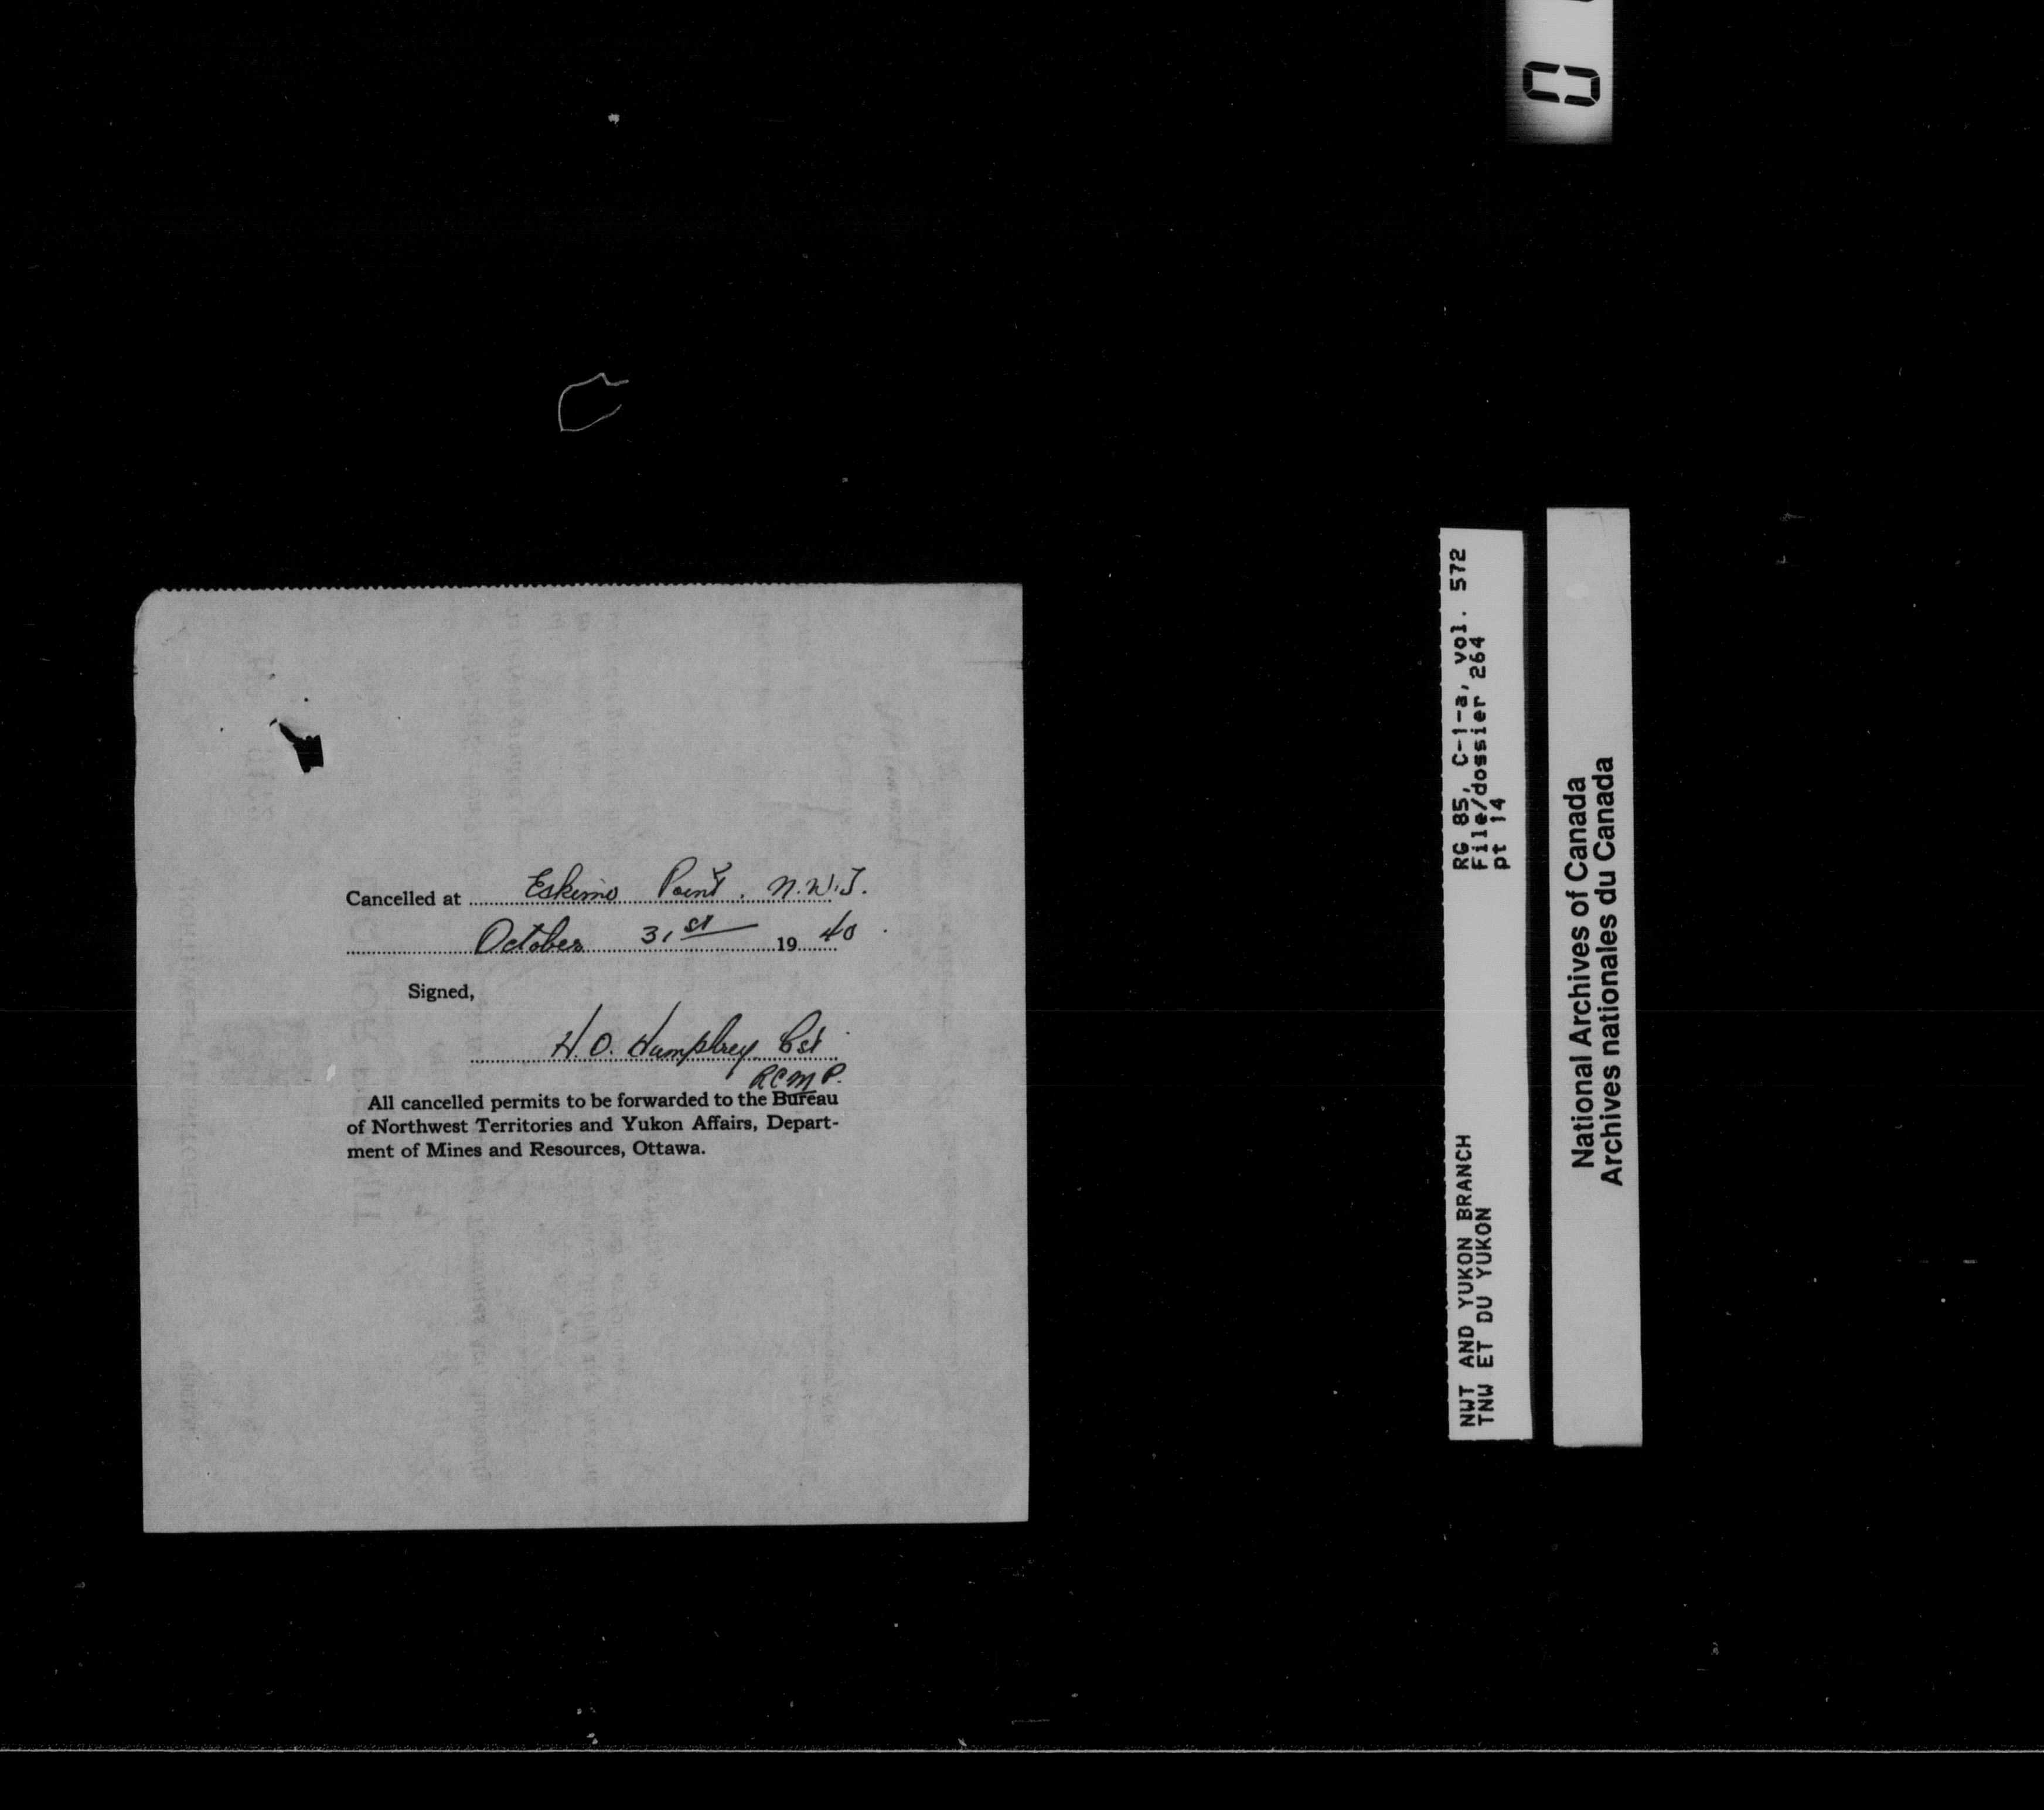 Cancelled at Eskimo Point, N.W.T.
October 31st 19 40
Signed,
H. O. Humphrey Cst
RCMP.
All cancelled permits to be forwarded to the Bureau
of Northwest Territories and Yukon Affairs, Depart-
ment of Mines and Resources, Ottawa.
RG 85, C-1-a, vol. 572
File/dossier 264
pt 14
NWT AND YUKON BRANCH
TNW ET DU YUKON
National Archives of Canada
Archives nationales du Canada
0